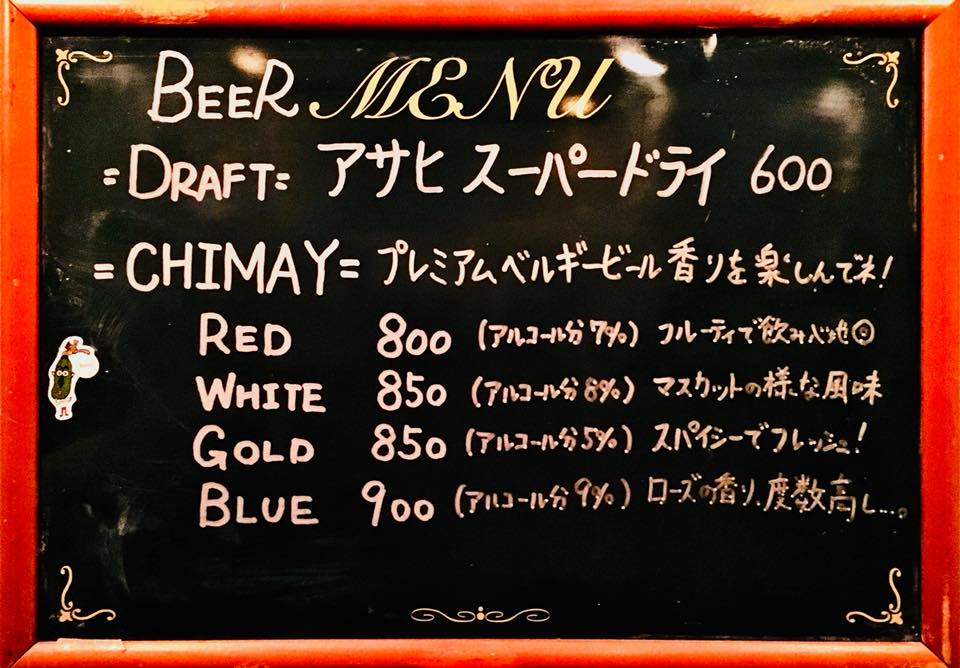 BEER MENU
=DRAFT= アサヒ スーパードライ 600
=CHIMAY= プレミアムベルギービール 香りを楽しんでネ!
RED 800 (アルコール分7%) フルーティで飲みべ
WHITE 850 (アルコール分8%) マスカットの様な風味
GOLD 850 (アルコール分5%) スパイシーでフレッシュ!
BLUE 900 (アルコール分9%) ローズの香り、度数高し...。